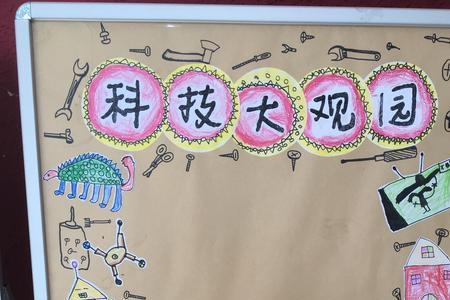 科技大观园